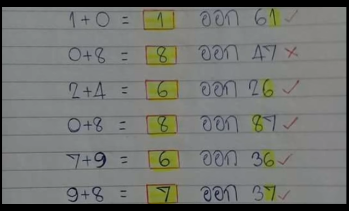 1+0 = 1 ออก 61 ✓
0+8 = 8 ออก 47 ×
2+4 = 6 ออก 26 ✓
0+8 = 8 ออก 87 ✓
7+9 = 6 ออก 36 ✓
9+8 = 7 ออก 37 ✓